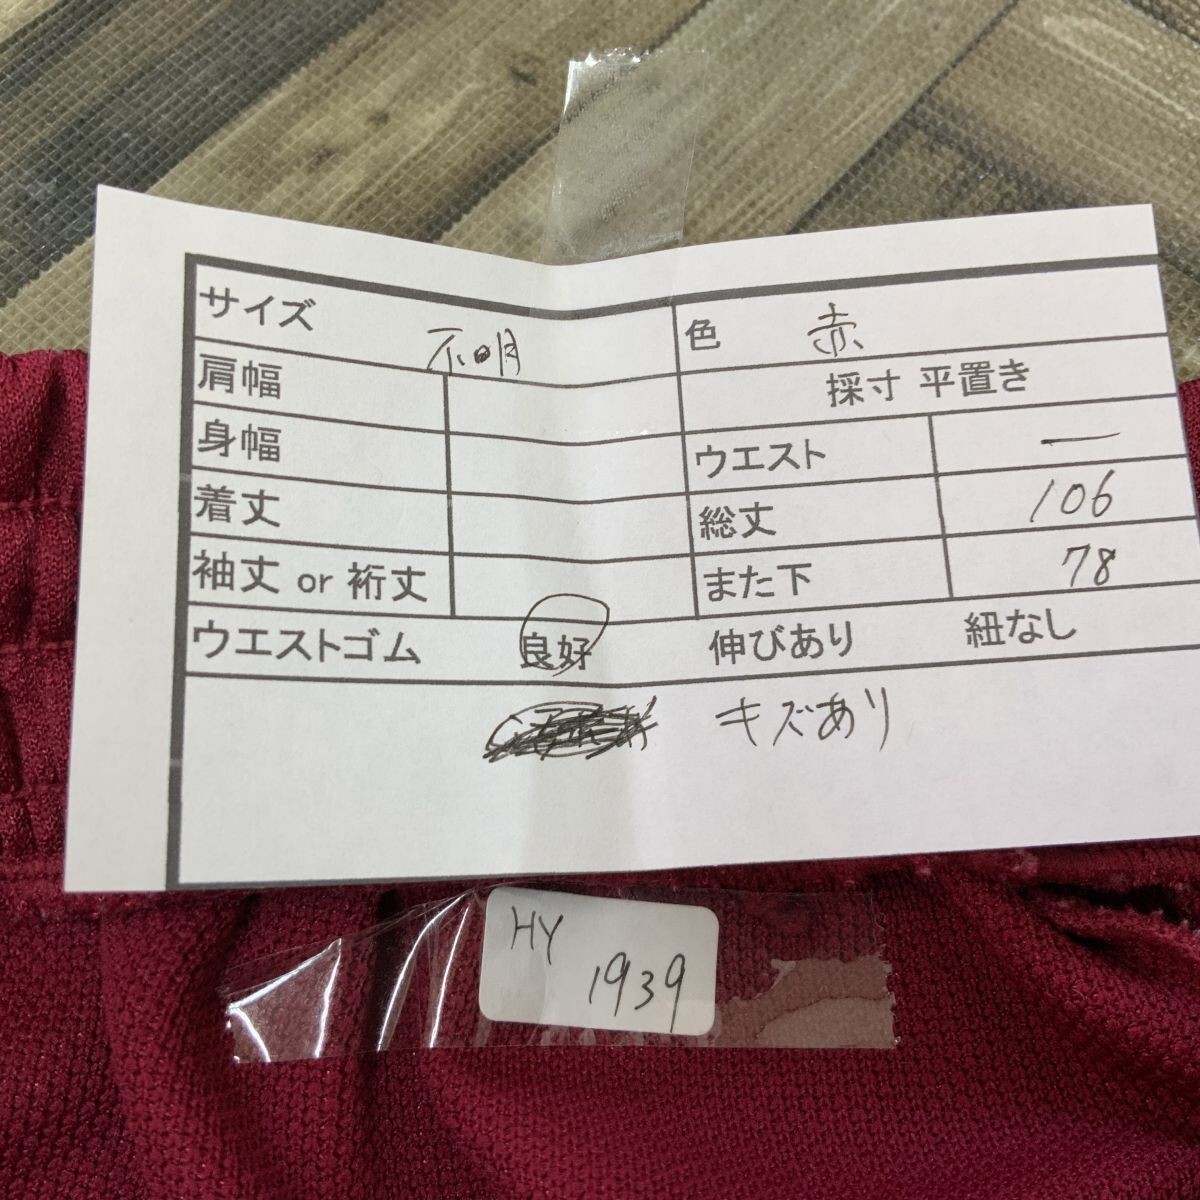 サイズ 不明 色 赤
肩幅 採寸 平置き
身幅 ウエスト ー
着丈 総丈 106
袖丈 or 裄丈 また下 78
ウエストゴム 良好 伸びあり 紐なし
キズあり
HY
1939